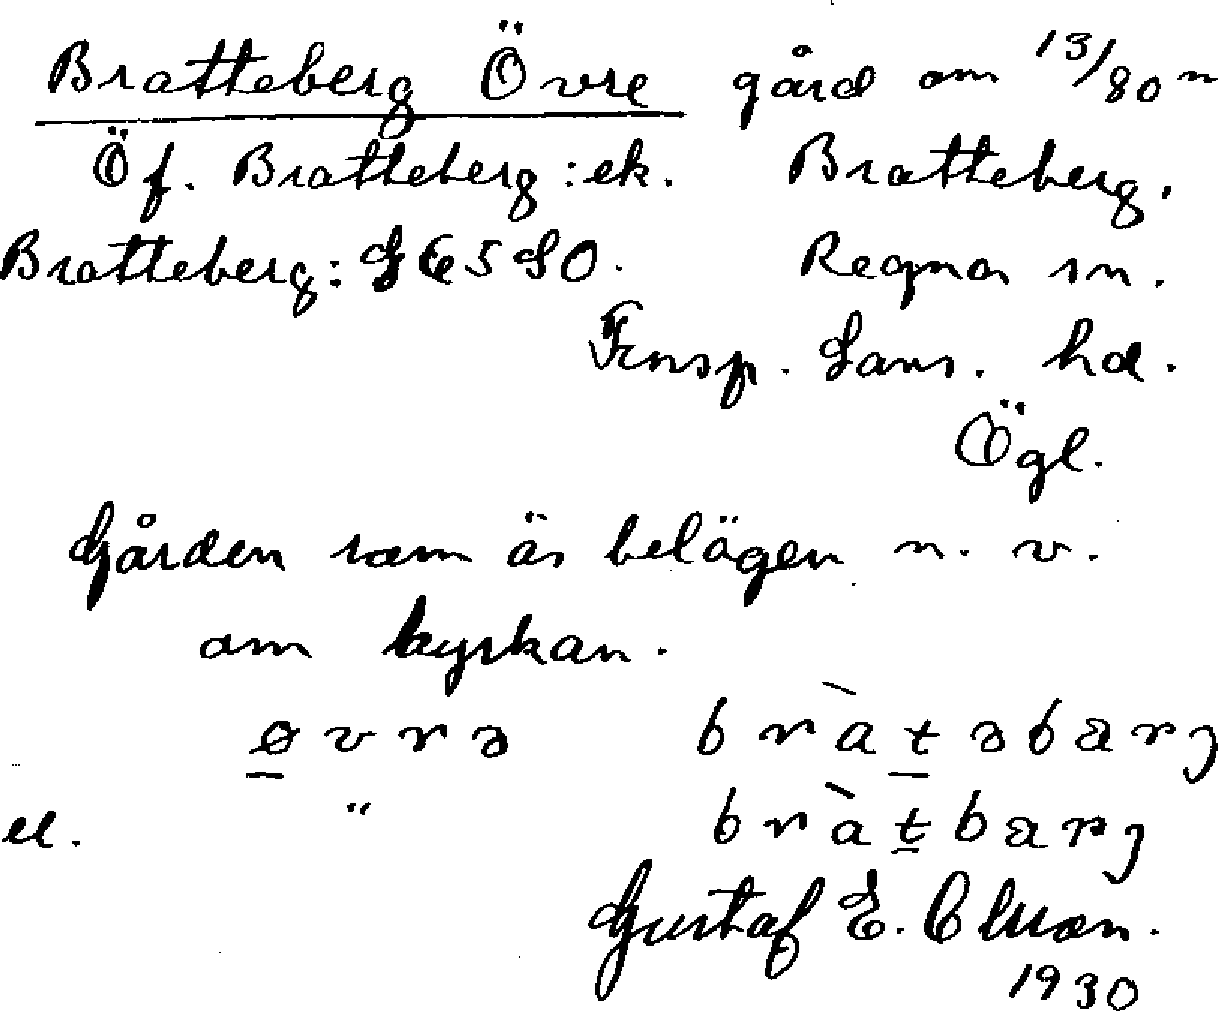 Bratteberg Övre gård om 13/80 n
Öf. Bratteberg: ek. Bratteberg.
Bratteberg: Regna sn.
Finsp. läns. hd.
Ögl.
Gården som är belägen n. v.
om kyrkan.
øvrə bràtəbærj
el. " bràtbærj
Gustaf E.
1930